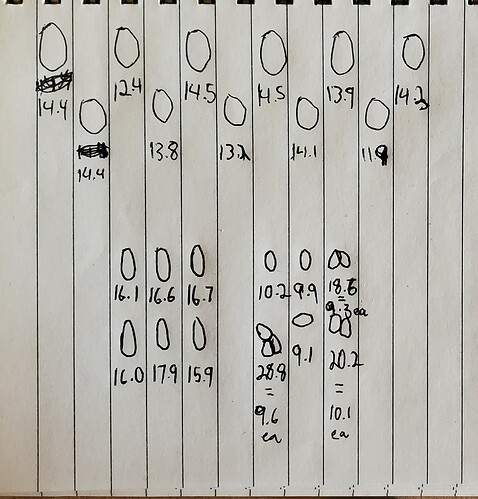 14.4 12.4 14.5 14.5 13.9 14.2
14.4 13.8 13.2 14.1 11.9
16.1 16.6 16.7 10.2 9.9 18.6
=
9.3 ea
16.0 17.9 15.9 28.8 9.1 20.2
= =
9.6 10.1
ea ea